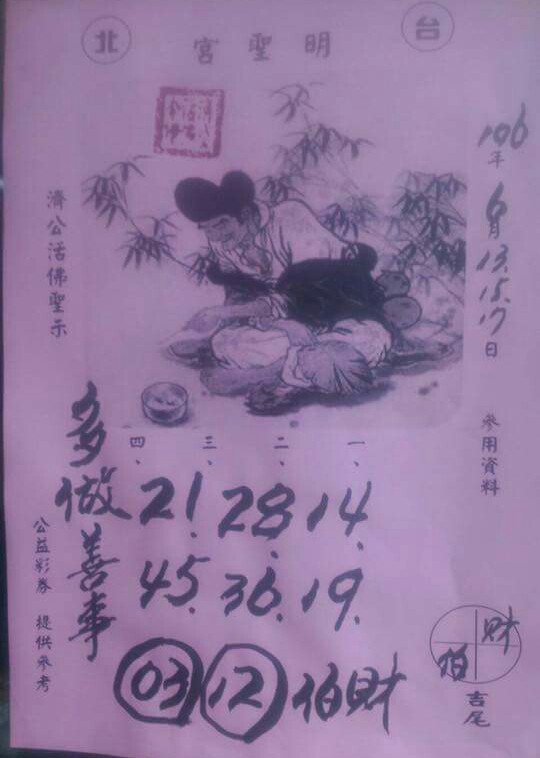 台北
明聖宮
106年6月13.15.17日
參用資料
濟公活佛聖示
一、二、三、四、
14. 28. 21.
19. 36. 45.
多做善事
03 12 伯財
財
伯
吉尾
公益彩券 提供參考